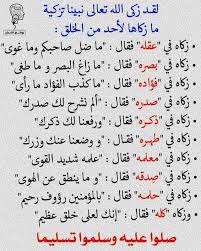 لقد زكى الله تعالى نبينا تزكية
ما زكاها لأحد من الخلق :
• زكاه في "عقله" فقال : " ما ضل صاحبكم وما غوى"
• زكاه في "بصره" فقال : " ما زاغ البصر و ما طغى"
• زكاه في "فؤاده" فقال : "ما كذب الفؤاد ما رأى"
• زكاه في "صدره" فقال : " ألم نشرح لك صدرك"
• زكاه في "ذكره" فقال : "ورفعنا لك ذكرك"
• زكاه في "طهره" فقال : " و وضعنا عنك وزرك"
• زكاه في "معلمه" فقال : " علمه شديد القوى"
• زكاه في "صدقه" فقال : " و ما ينطق عن الهوى"
• زكاه في "حلمه" فقال : "بالمؤمنين رؤوف رحيم"
• وزكاه "كله" فقال : "إنك لعلى خلق عظيم"
صلوا عليه وسلموا تسليما